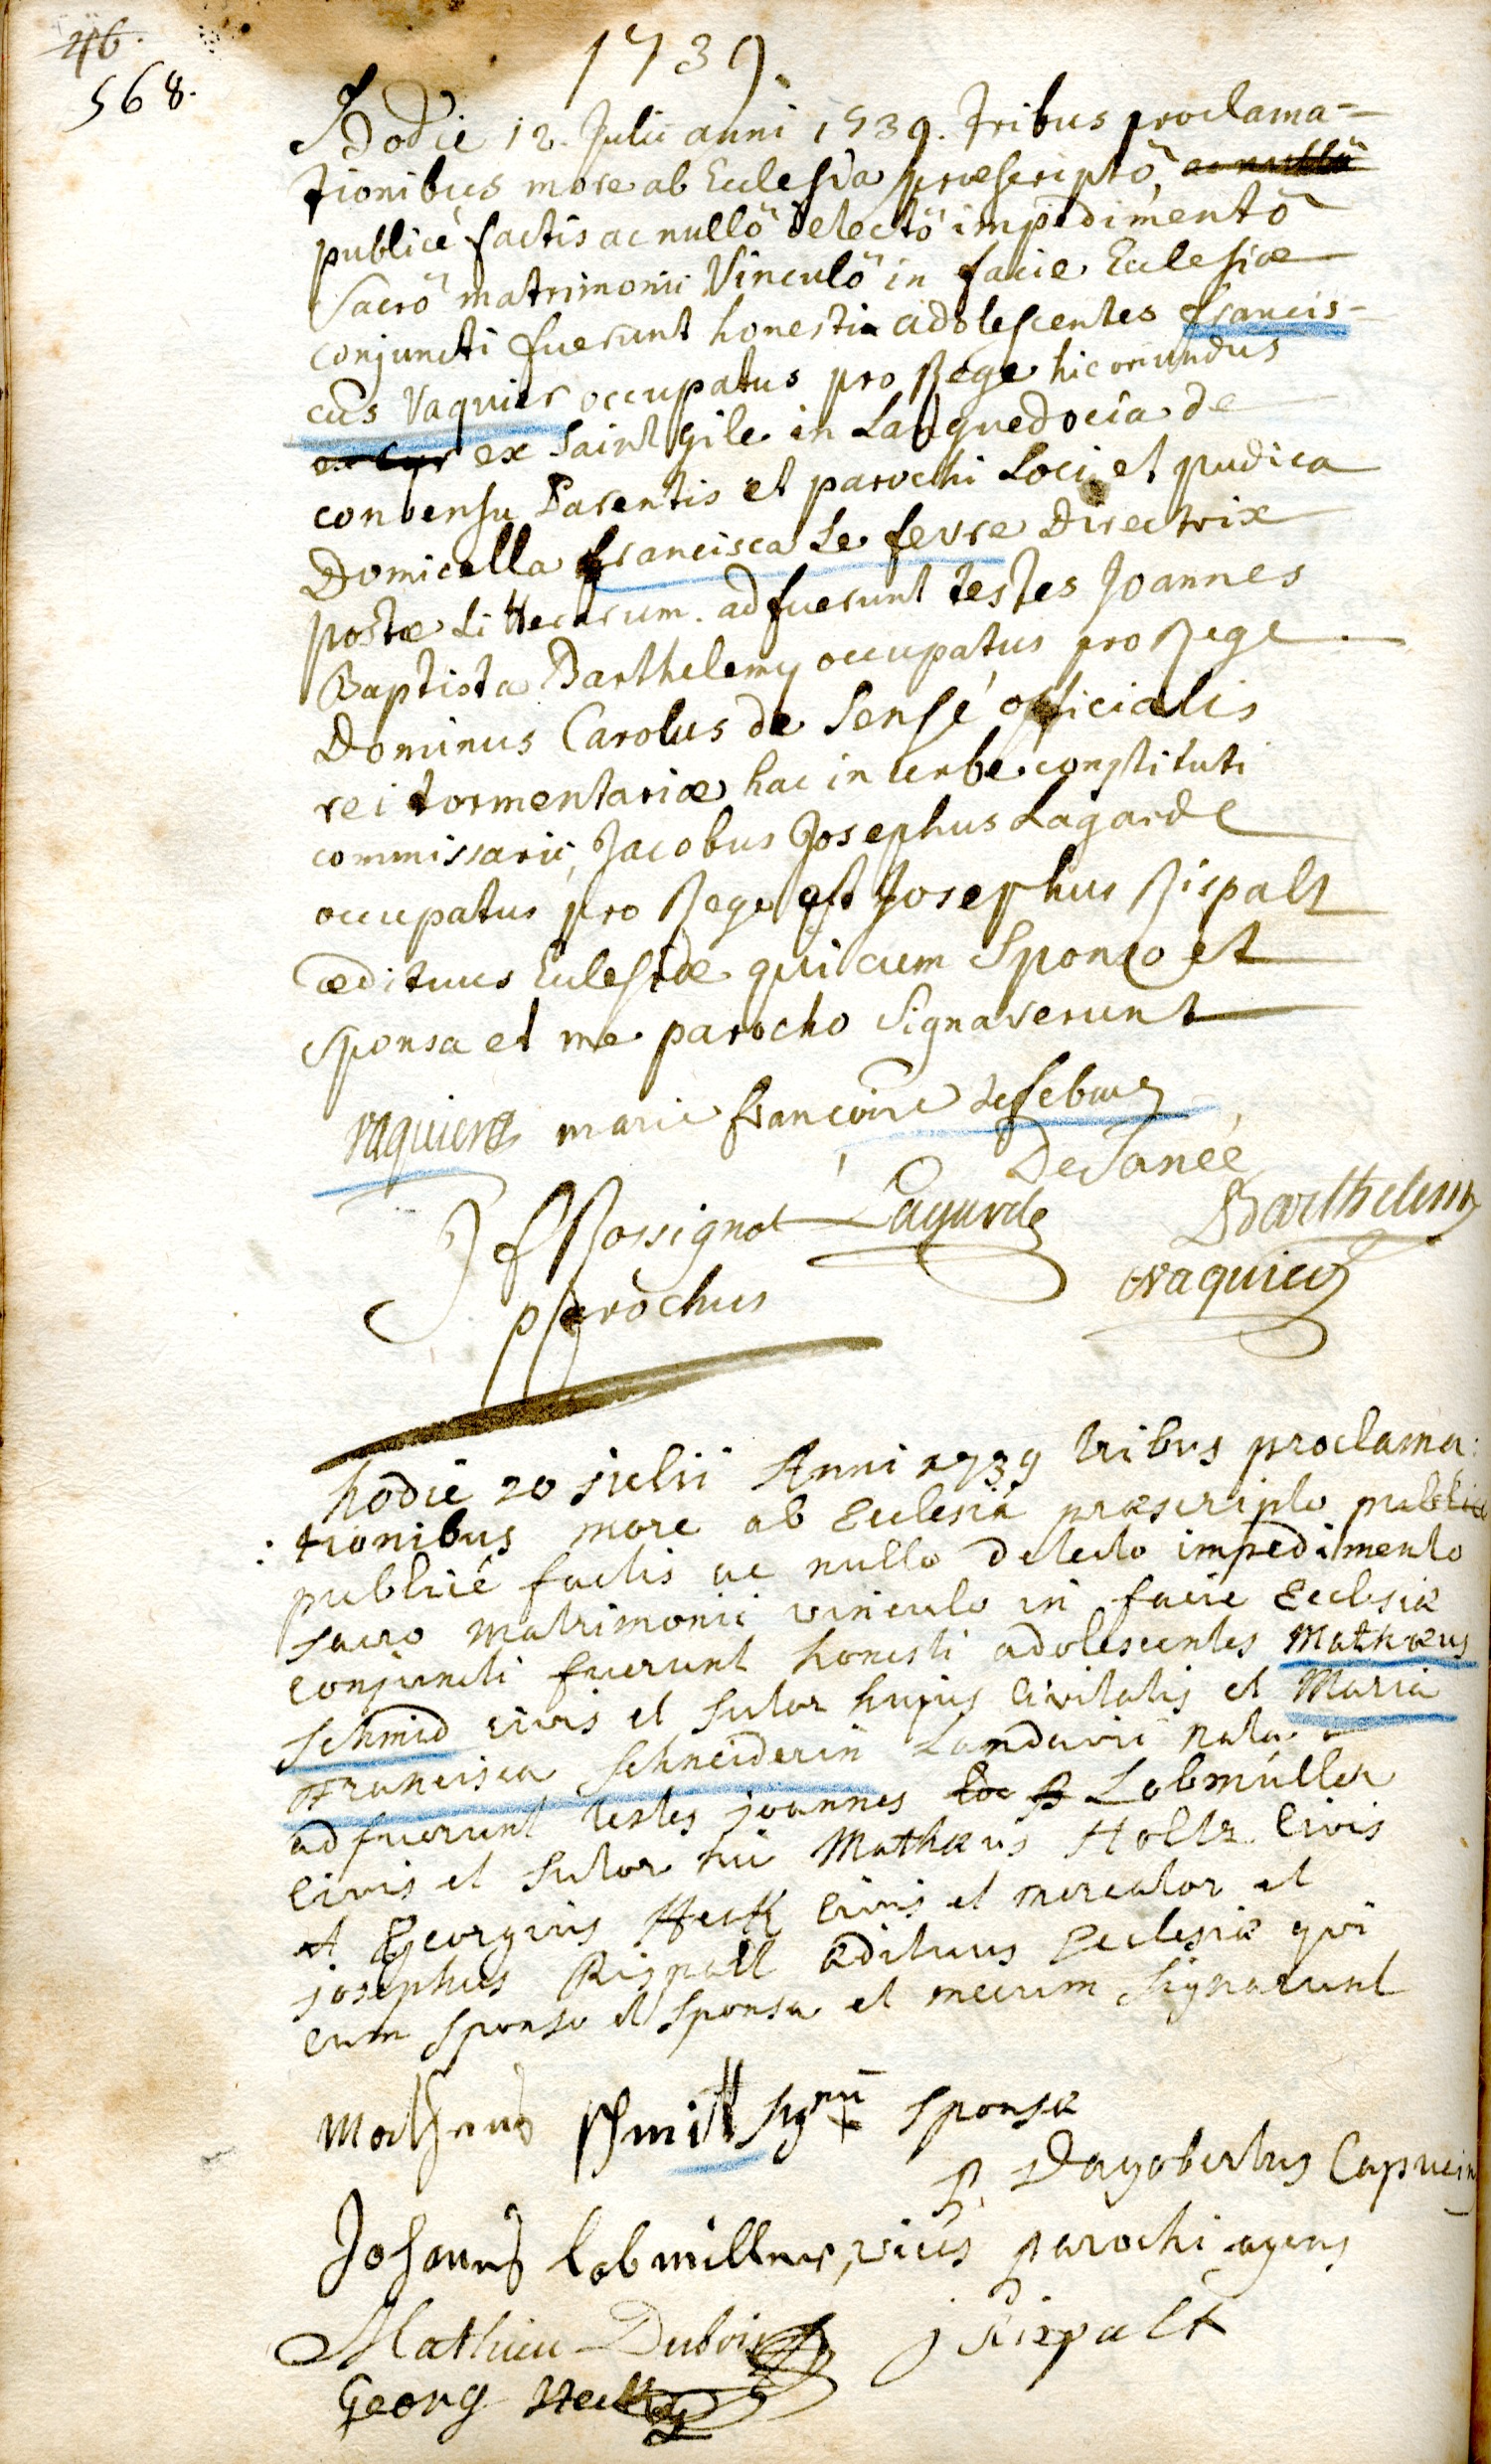 46.
568.
1739.
Hodie 12. Julii anni 1739. tribus proclama=
tionibus more ab Ecclesia præscriptö, ac nullö
publicè factis ac nullö detectö impedimentö
Sacrö matrimonii Vinculö in facie Ecclesiæ
conjuncti fuerunt honesti adolescentes francis-
cus Vaquier occupatus pro Rege hic oriundus
ex Saint Gile in Languedocia de
consensu Parentis et parochi Loci et pudica
Domicella francisca Le fevre Directrix
postæ Litterarum. adfuerunt testes Joannes
Baptista Barthelemy occupatus pro Rege
Dominus Carolus de Sensé officialis
rei tormentariæ hac in urbe constituti
commissarii, Jacobus Josephus Lagarde
occupatus pro Rege est Josephus Rispalt
ædituus Ecclesiæ qui cum Sponso et
Sponsa et me parocho Signaverunt
vaquiere marie francoise Lefebure
DeSanéé
J f Rossignot Lagarde Barthelemy
parochus vaquier
hodie 20 julii Anni 1739 tribus proclama:
:tionibus more ab Ecclesiâ præscripto publicè
publicé factis ac nullo detecto impedimento
sacro Matrimonii vinculo in facie Ecclesiæ
conjuncti fuerunt honesti adolescentes Mathæus
Schmid civis et sutor hujus civitatis et Maria
Francisca Schneiderin Landavii nata
adfuerunt testes joannes Lobmüller
civis et sutor hic Mathæus Holtz civis
et Georgius Heck civis et mercator et
josephus Rispalt ædituus Ecclesiæ qui
cum sponso et sponsa et mecum signarunt
Matheus Schmitt sig^nū + sponsæ
P. Dagobertus Capucin
Johannes Lobmiller, vices parochi agens
Mathieu Dubois j Rispalt
Georg Heck